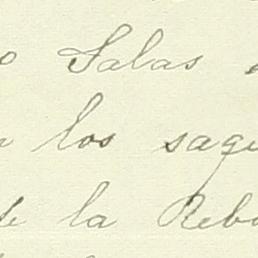 o Salas
los saque
de la Rebo